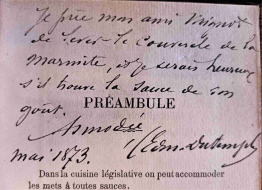 Je prie mon ami
de lever le Couvercle de la
marmite, et je serais heureux
s'il trouve la sauce de son
goût.
PRÉAMBULE
mai 1873.
Dans la cuisine législative on peut accommoder
les mets à toutes sauces.